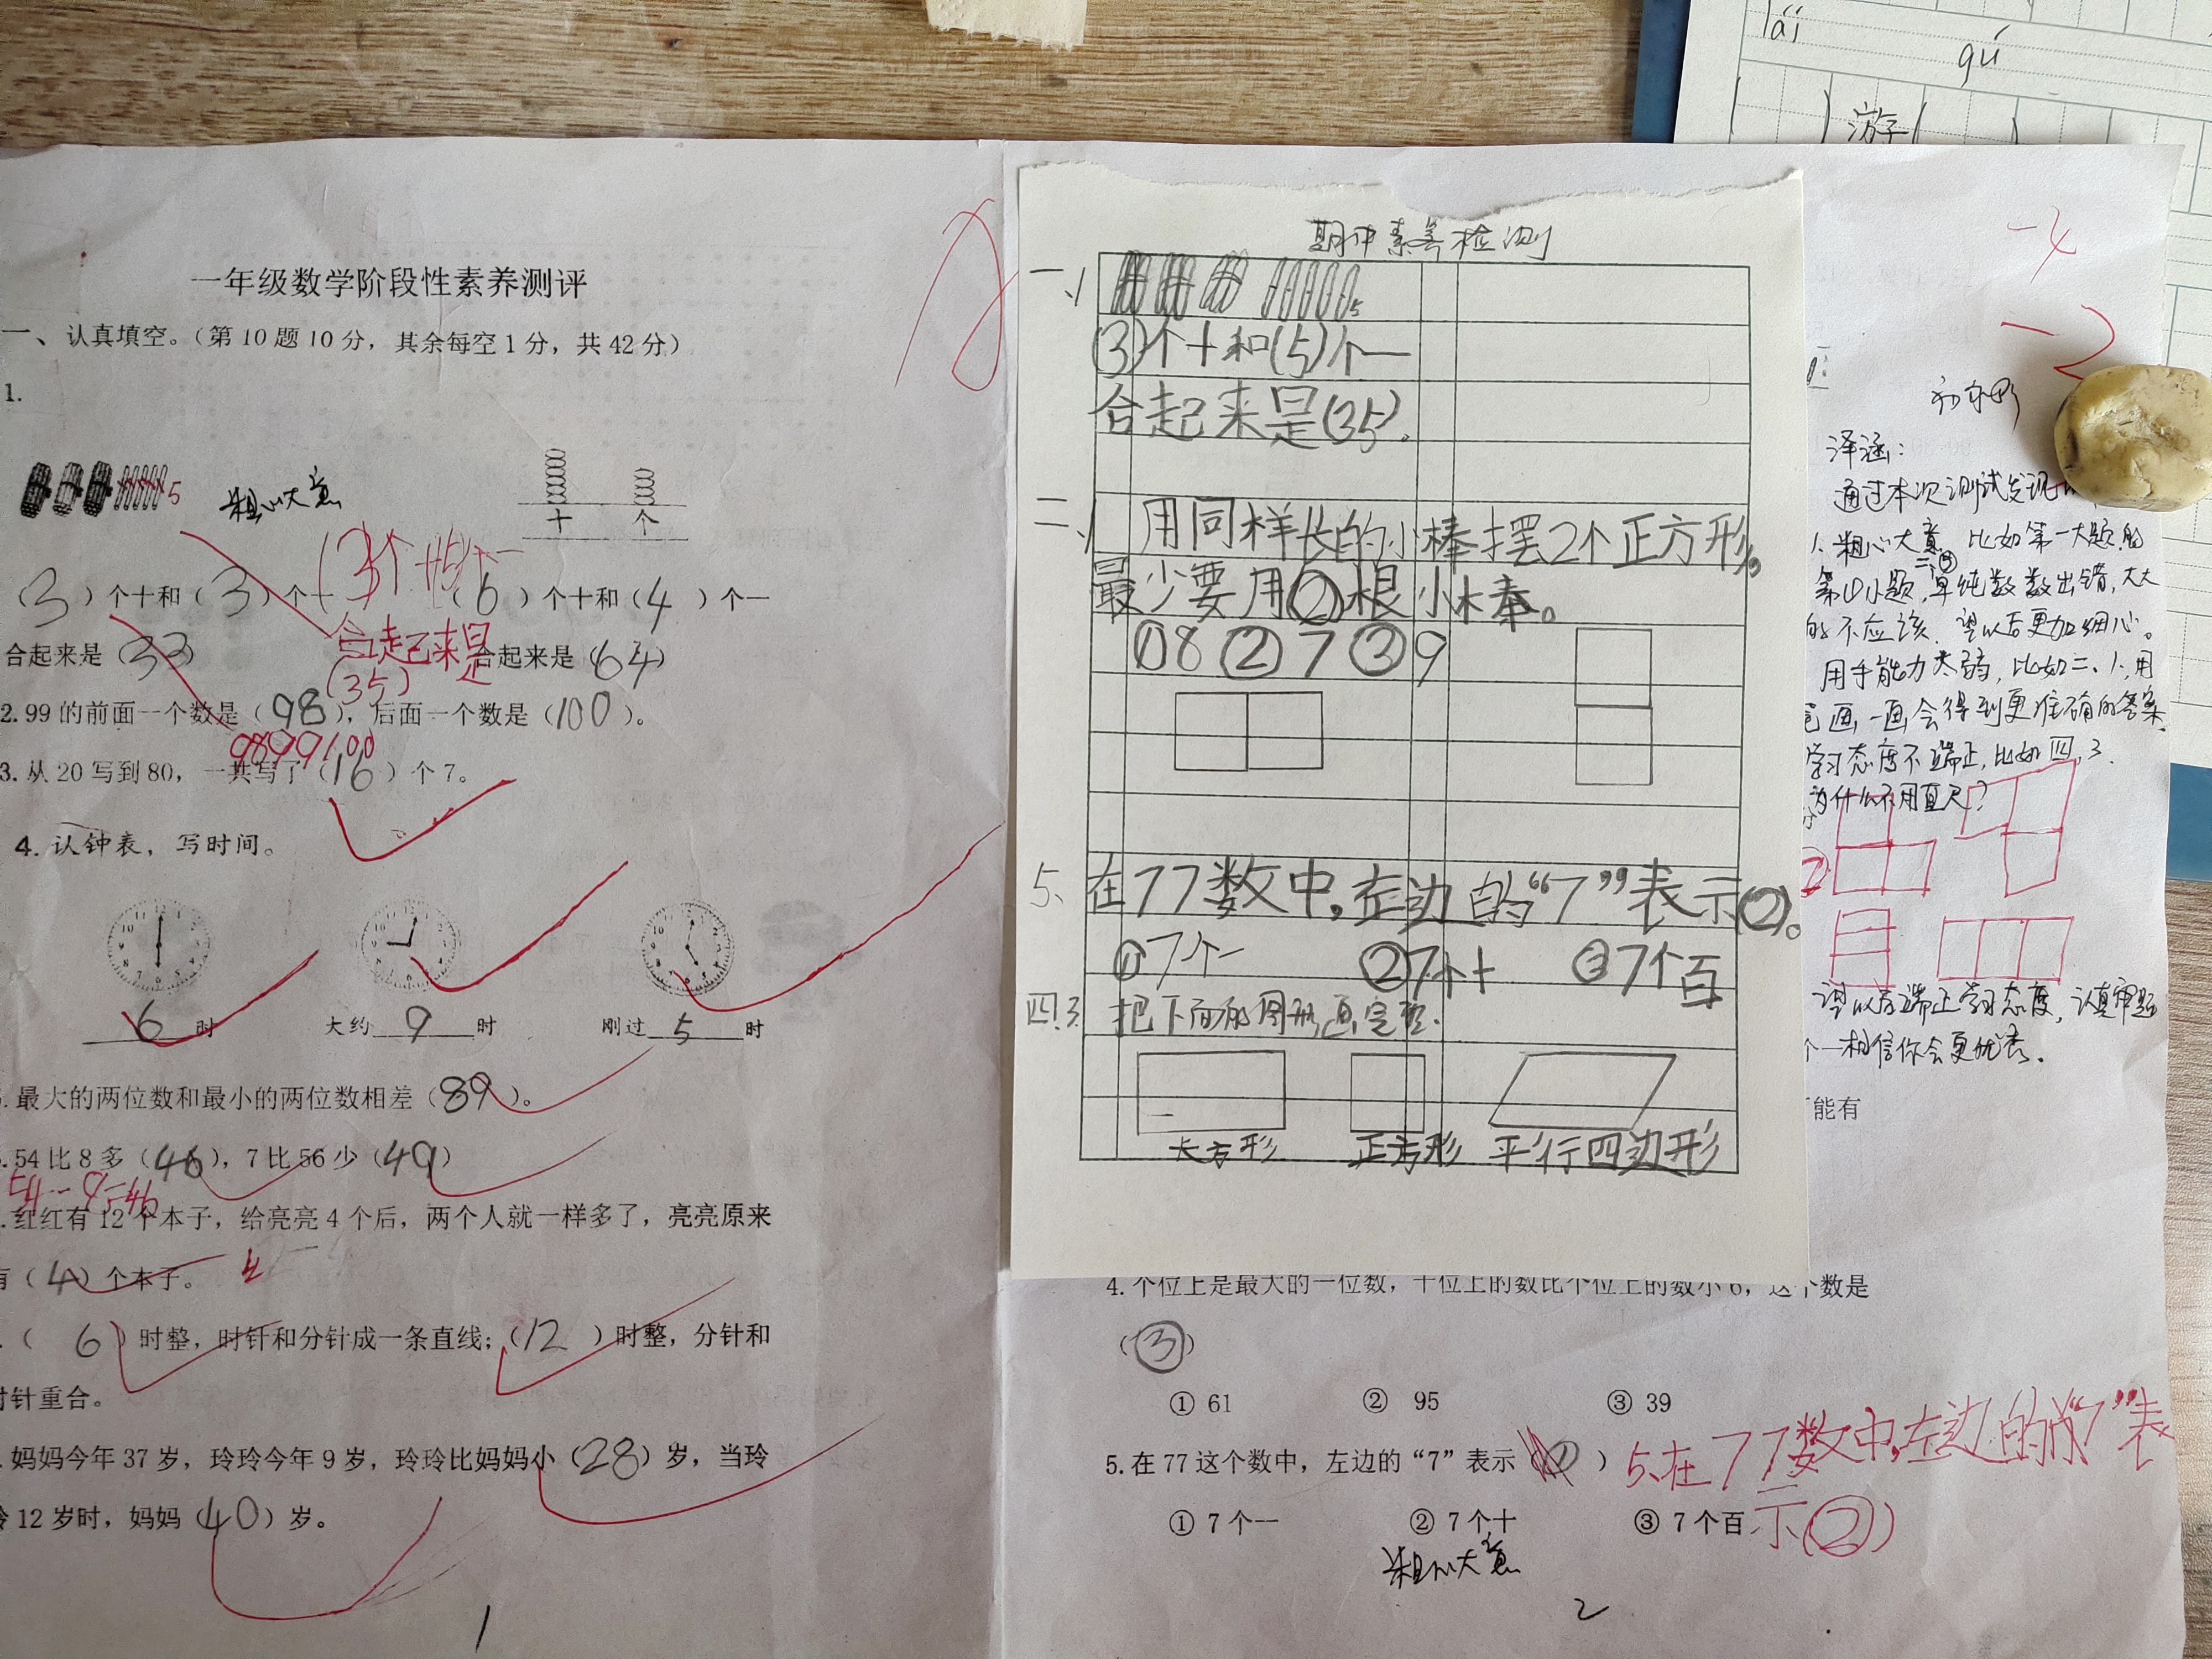 一年级数学阶段性素养测评
一、认真填空。（第10题10分，其余每空1分，共42分）
1.
5
粗心大意
十 个
（3）个十和（3）个一
（6）个十和（4）个一
合起来是（33）
合起来是（64）
合起来是
（35）
2.99的前面一个数是（98），后面一个数是（100）。
98 99 100
3.从20写到80，一共写了（16）个7。
4.认钟表，写时间。
6时
大约9时
刚过5时
.最大的两位数和最小的两位数相差（89）。
.54比8多（46），7比56少（49）
54-8=46
.红红有12个本子，给亮亮4个后，两个人就一样多了，亮亮原来
有（4）个本子。
4
.（6）时整，时针和分针成一条直线；（12）时整，分针和
时针重合。
.妈妈今年37岁，玲玲今年9岁，玲玲比妈妈小（28）岁，当玲
玲12岁时，妈妈（40）岁。
1
期中素养检测
一、1
5
(3)个十和(5)个一
合起来是(35)。
二、1 用同样长的小棒摆2个正方形,
最少要用②根小棒。
①8 ②7 ③9
5、在77数中,左边的“7”表示②。
①7个一 ②7个十 ③7个百
四.3. 把下面的图形画完整.
长方形 正方形 平行四边形
lái
gú
( ) 游子( )
-4
-2
泽涵：
通过本次测试发现
1、粗心大意 比如第一大题的
第①小题,单纯数数出错,大大
的不应该.望以后更加细心。
用手能力太弱,比如二、1、用
画一画会得到更准确的答案.
学习态度不端正,比如四,3.
为什么不用直尺?
望以后端正学习态度,认真审题
相信你会更优秀.
能有
4.个位上是最大的一位数，十位上的数比个位上的数小6，这个数是
（③）
① 61 ② 95 ③ 39
5.在77这个数中，左边的“7”表示（ ）
5、在77数中,左边的“7”表
示(②)
① 7个一 ② 7个十 ③ 7个百
粗心大意
2